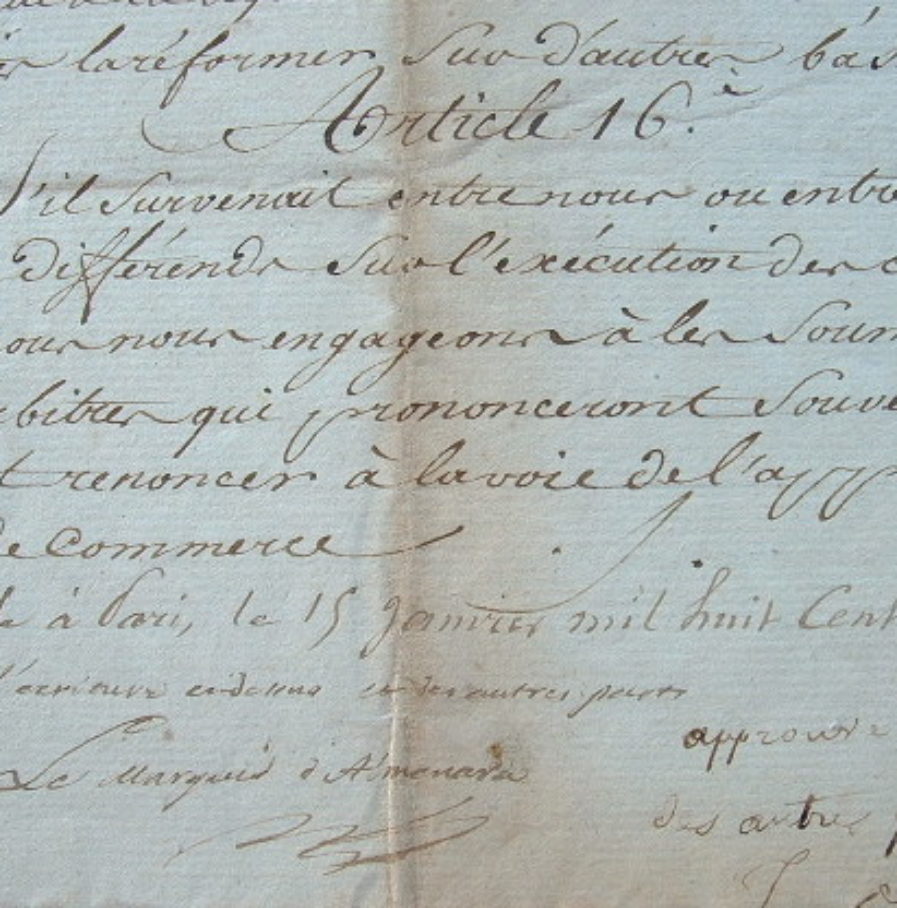 la réformer sur d'autres bas
Article 16.e
S'il survenait entre nous ou entre
différends sur l'exécution des c
nous engageons à les soum
bitres qui prononceront souve
t renoncer à la voie de l'app
de Commerce
à Paris, le 15 Janvier mil huit Cent
l'écriture ci dessus et des autres parts
approuvé
Le Marquis d'Almenara
des autres